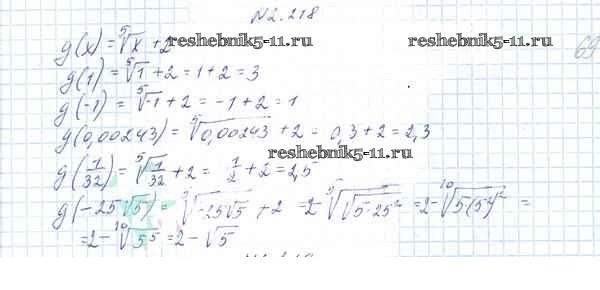 №2.218
g(x) = ⁵√x + 2
reshebnik5-11.ru reshebnik5-11.ru 69
g(1) = ⁵√1 + 2 = 1 + 2 = 3
g(-1) = ⁵√-1 + 2 = -1 + 2 = 1
g(0,00243) = ⁵√0,00243 + 2 = 0,3 + 2 = 2,3
reshebnik5-11.ru
g(1/32) = ⁵√1/32 + 2 = 1/2 + 2 = 2,5
g(-25√5) = ⁵√-25√5 + 2 = 2-⁵√√5·25² = 2-¹⁰√5·(5²)² =
= 2-¹⁰√5⁵ = 2-√5